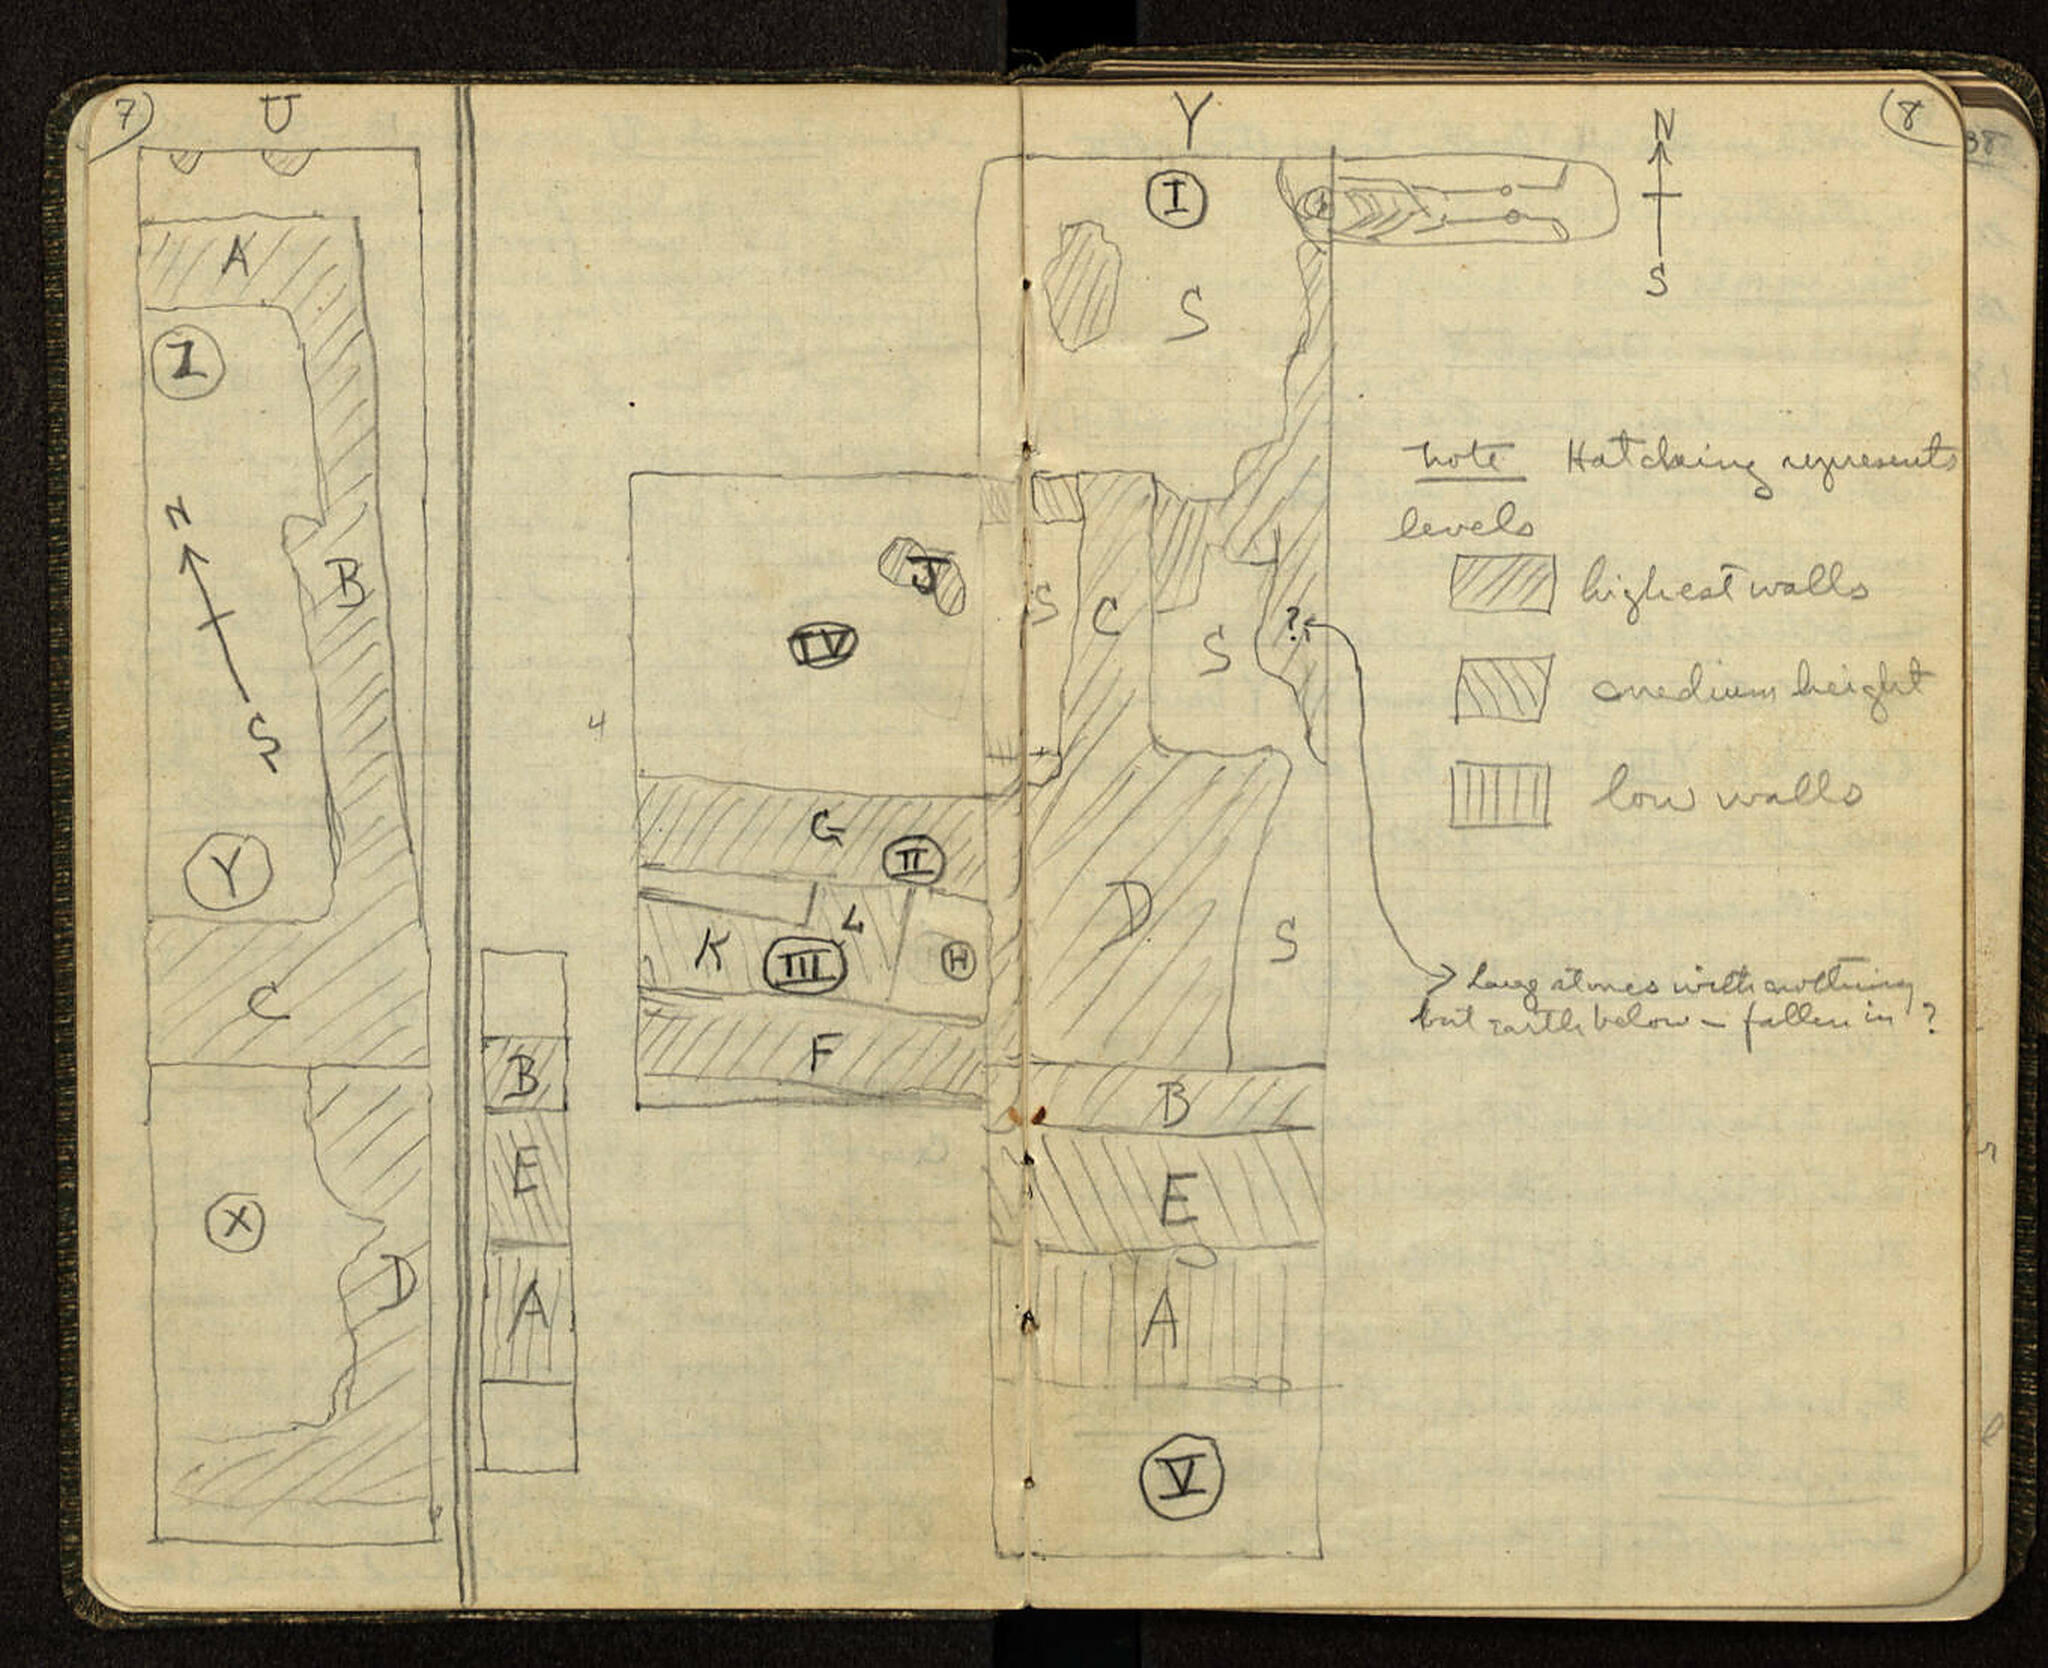 7
U
A
Z
N
B
S
Y
C
X
D
B
E
A
J
IV
4
G
II
K
L
III
H
F
8
Y
N
I
S
S
S
C
S
?
D
S
B
E
A
V
note Hatching represents
levels
highest walls
medium height
low walls
stones with nothing
but earth below – fallen in ?